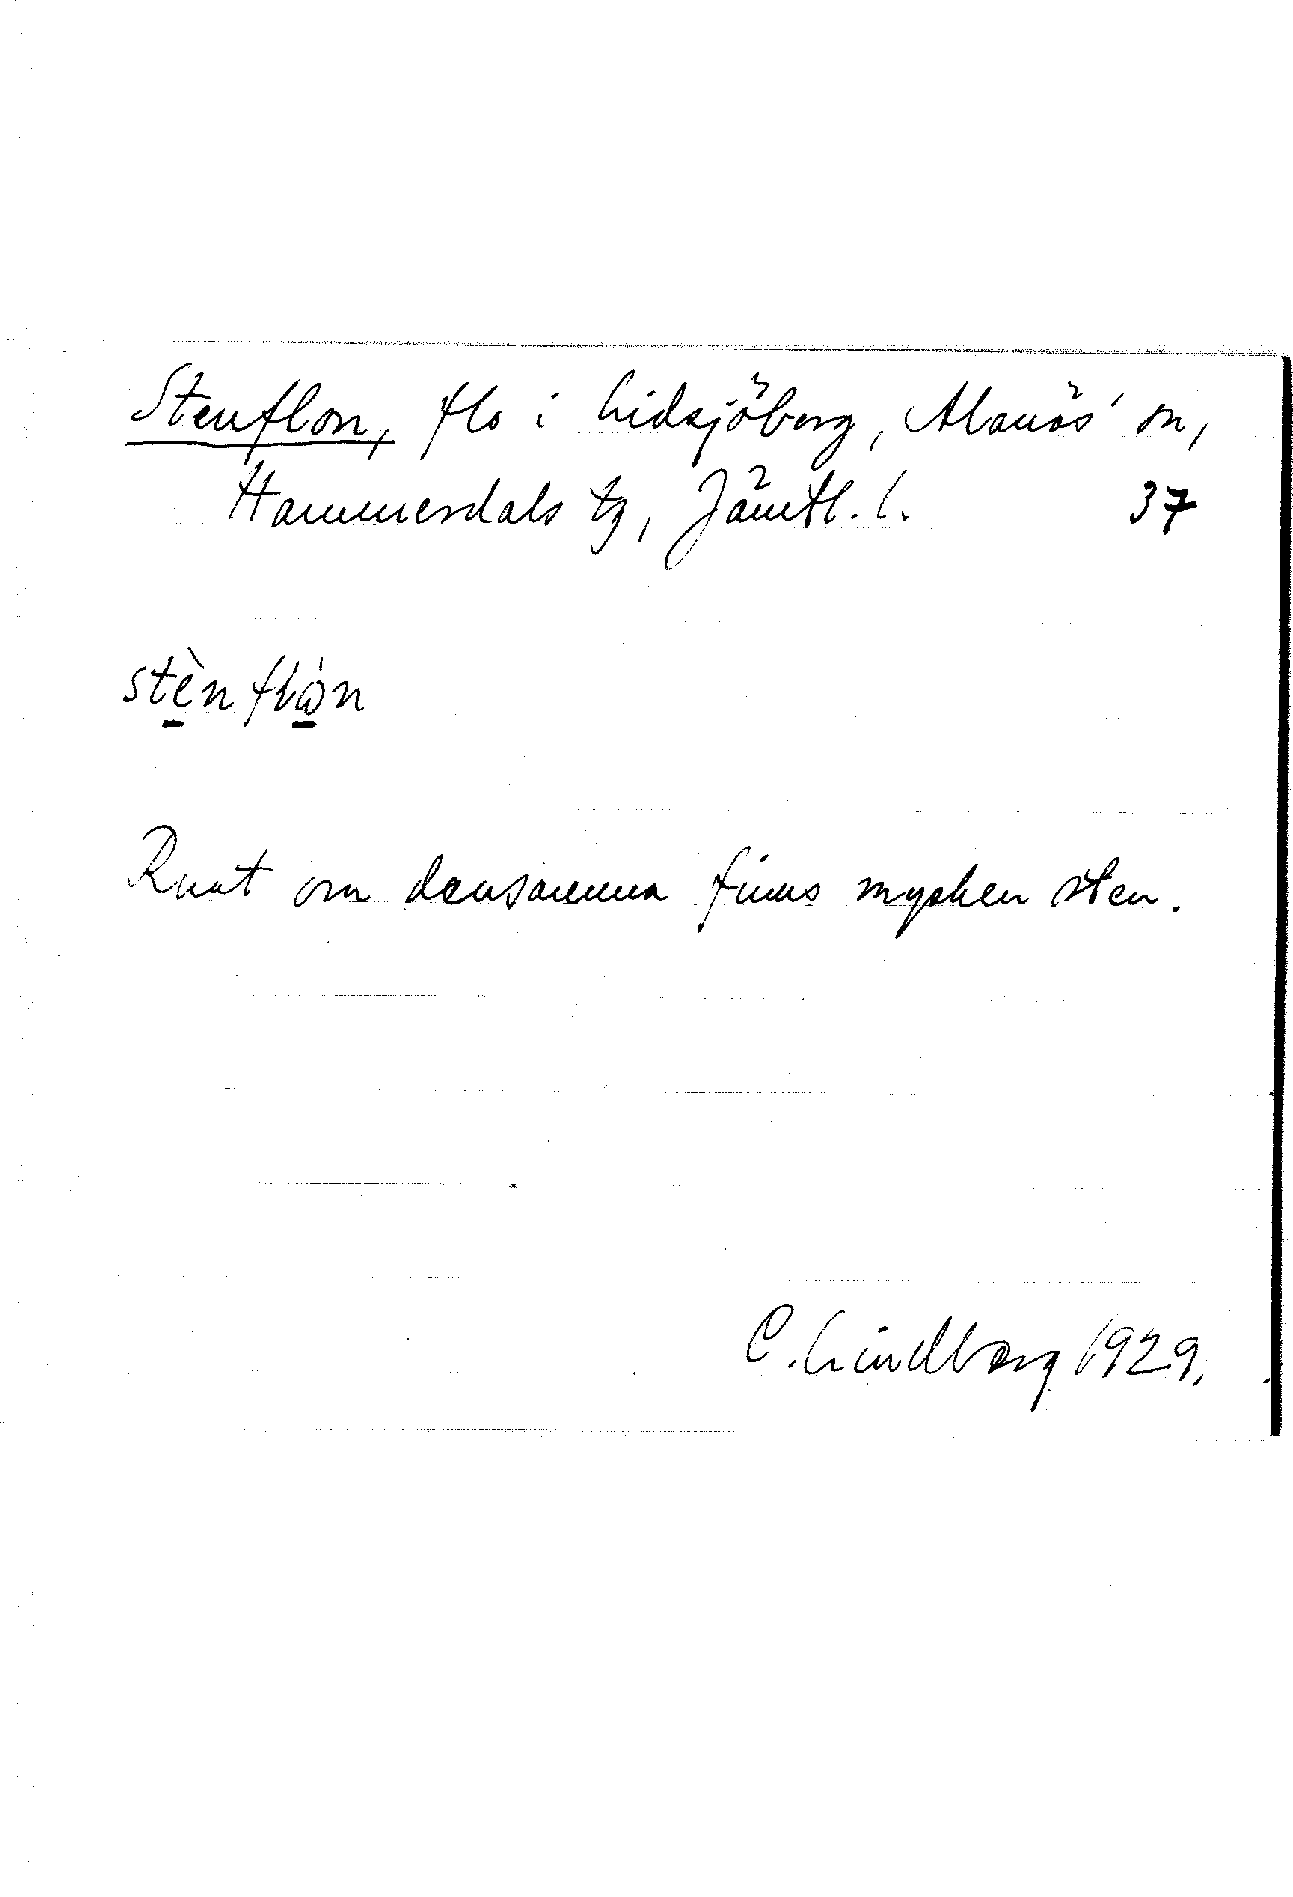 Stenflon, flo i Lidsjöberg, Alanäs' sn,
Hammerdals tg, Jämtl. l. 37
stènflὼn
Runt om densamma finns mycken sten.
C. Lindberg 1929.